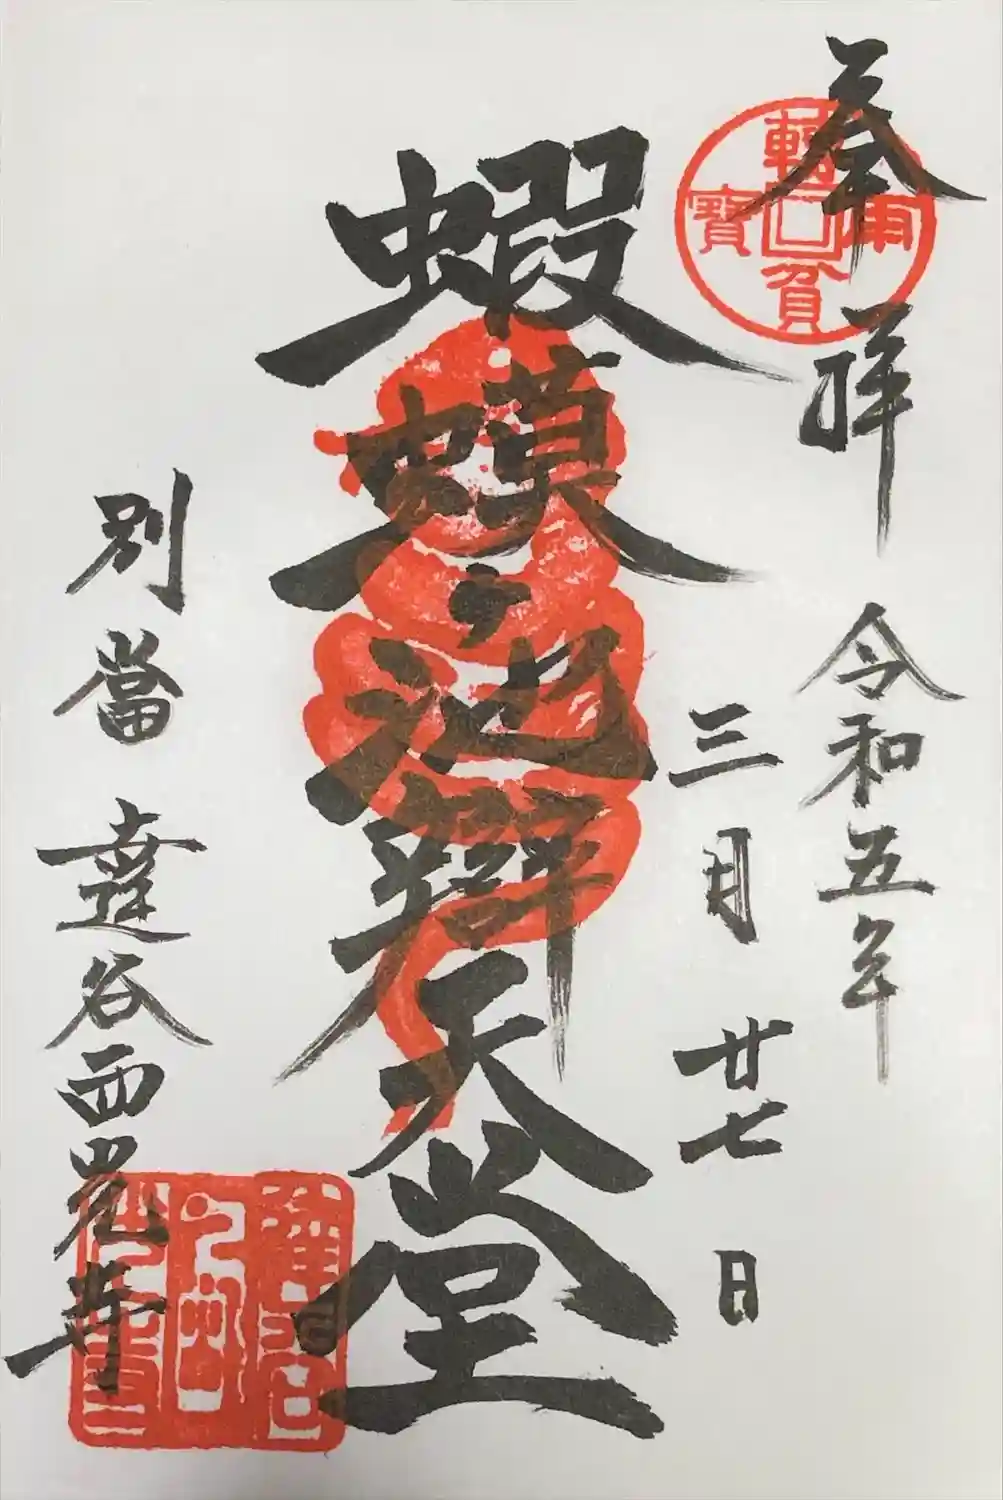 奉拝
令和五年
三月廿七日
蝦蟆ヶ池辯天堂
別當 達谷西光寺